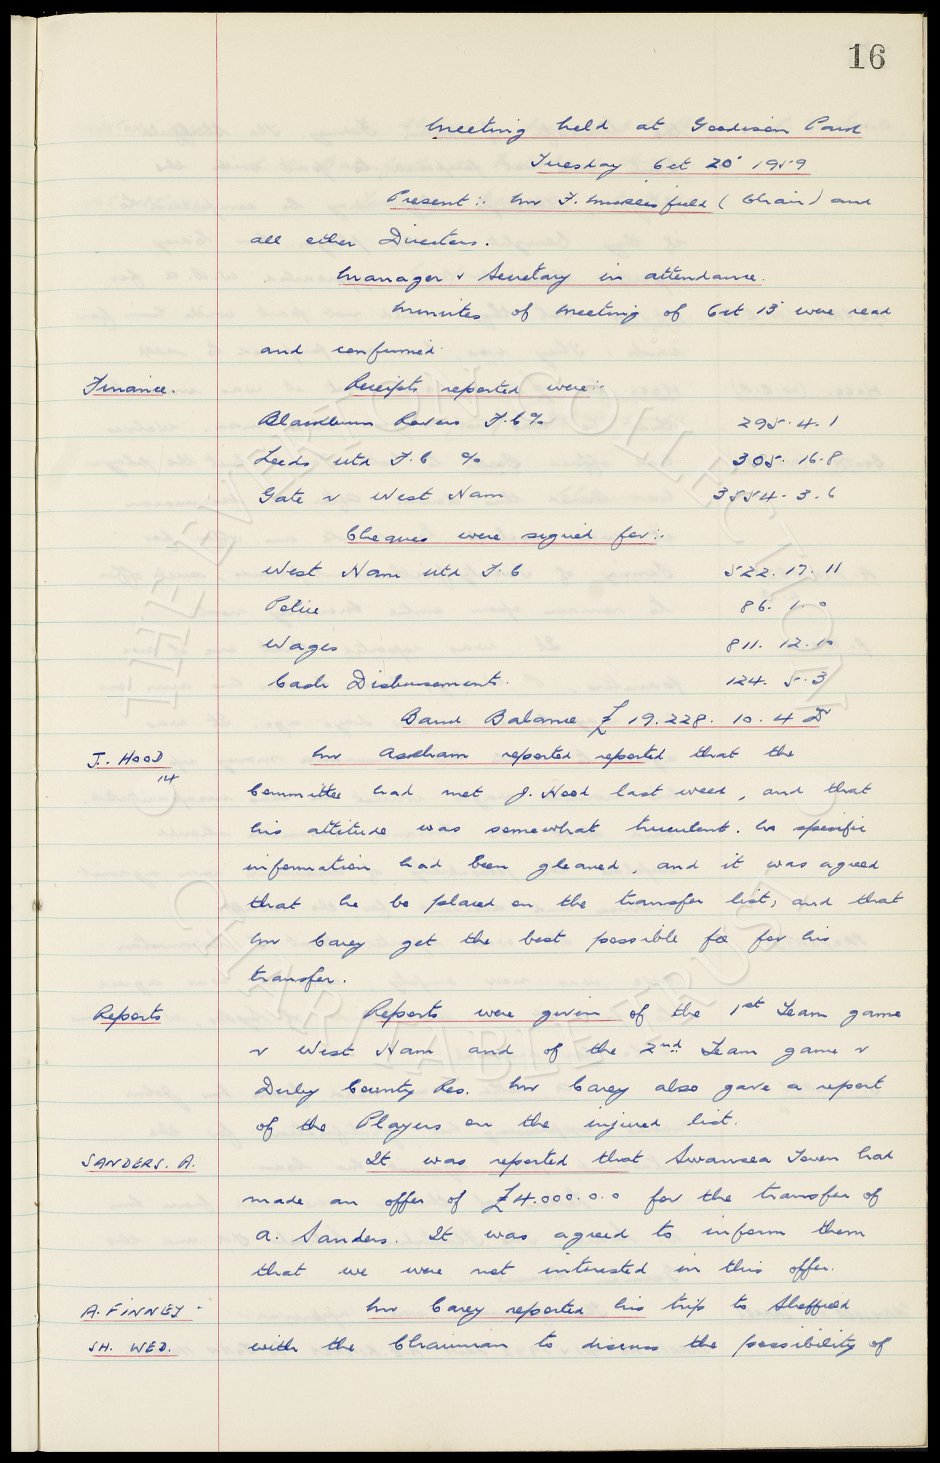 16
Meeting held at Goodison Park
Tuesday Oct 20' 1959
Present:- Mr F. Micklesfield (Chair) and
all other Directors.
Manager & Secretary in attendance.
Minutes of Meeting of Oct 13' were read
and confirmed.
Finance. Receipts reported were:-
Blackburn Rovers F.C % 295.4.1
Leeds Utd F.C % 305.16.8
Gate v West Ham 3554.3.6
Cheques were signed for:-
West Ham Utd F.C 522.17.11
Police 86.1.0
Wages 811.12.10
Cash Disbursements. 124.5.3
Bank Balance £19.228.10.4 Dr
J. HOOD Mr Askham reported reported that the
14 Committee had met J. Hood last week, and that
his attitude was somewhat truculent. No specific
information had been gleaned, and it was agreed
that he be placed on the transfer list, and that
Mr Carey get the best possible fee for his
transfer.
Reports Reports were given of the 1st Team game
v West Ham and of the 2nd Team game v
Derby County Res. Mr Carey also gave a report
of the Players on the injured list.
SANDERS. A. It was reported that Swansea Town had
made an offer of £4.000.0.0 for the transfer of
A. Sanders. It was agreed to inform them
that we were not interested in this offer.
A. FINNEY - Mr Carey reported his trip to Sheffield
SH. WED. with the Chairman to discuss the possibility of
THE EVERTON COLLECTION
CHARITABLE TRUST